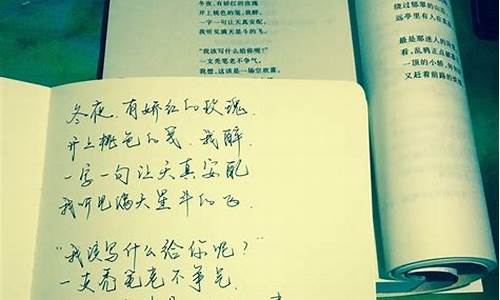 冬夜，有娇红的玫瑰
开上桃色的笺，我醉，
一字一句让天真安配，
我听见满天星斗的飞。
“我该写什么给你呢？”
一支秃笔老不争气。
我想，这该是一场空欢喜，
绕过郁翠的山
远亭里有人在
最是那迷人的
看，乱鸦正点
一顶的小轿，
又赶着前路的
冬夜，有娇红的玫瑰，
开上桃色的笺，我醉，
一字一句让天真安配
我听见满天星斗的飞
“我该写什么给你呢？”
一支秃笔老不争气